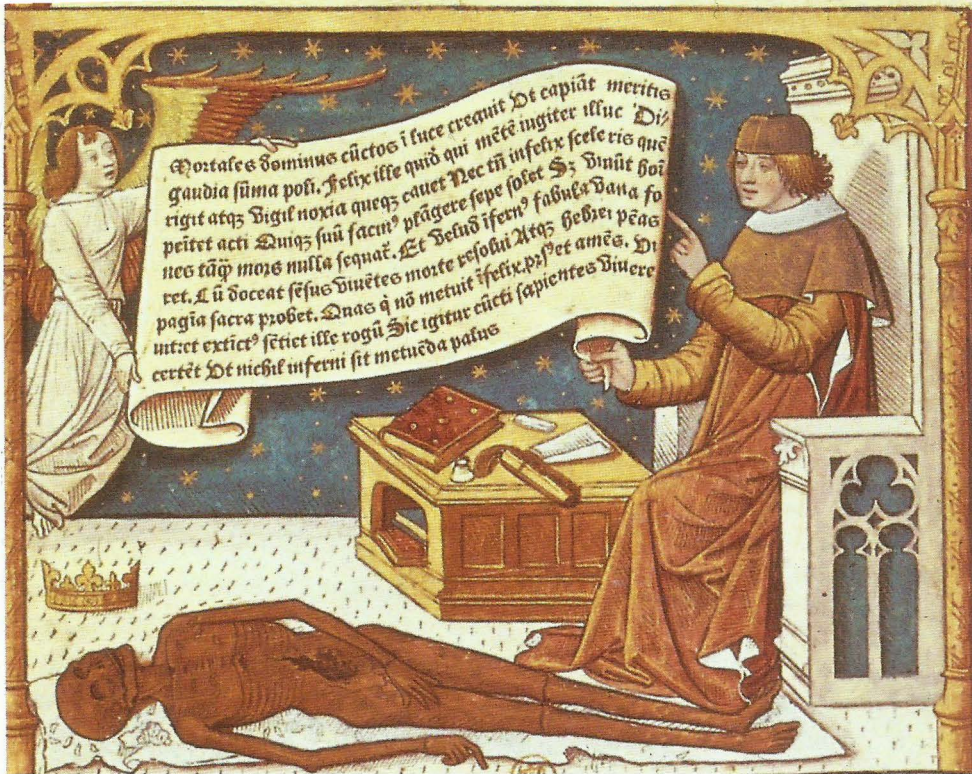 Mortales dominus cūctos ī luce crequit Vt capiāt meritis
gaudia sūma poli. Felix ille quid qui mētē iugiter illuc Di-
rigit atqz Vigil noxia queqz cauet Nec tn̄ infelix sceleris quē
peītet acti Quiqz suū facinꝰ plāgere sepe solet Sz Viuūt hoī
nes tāqꝫ mors nulla sequat̄. Et Velud īfernꝰ fabula Vana fo
ret. Cū doceat sēsus Viuētes morte resolui Atqz hebrei pēas
pagīa sacra probet. Quas q̄ nō metuit īfelix prsꝰ et amēs. Vi
uit: et extīctꝰ sētiet ille rogū Sic igitur cūcti sapientes Viuere
certēt Vt nichil inferni sit metuēda palus